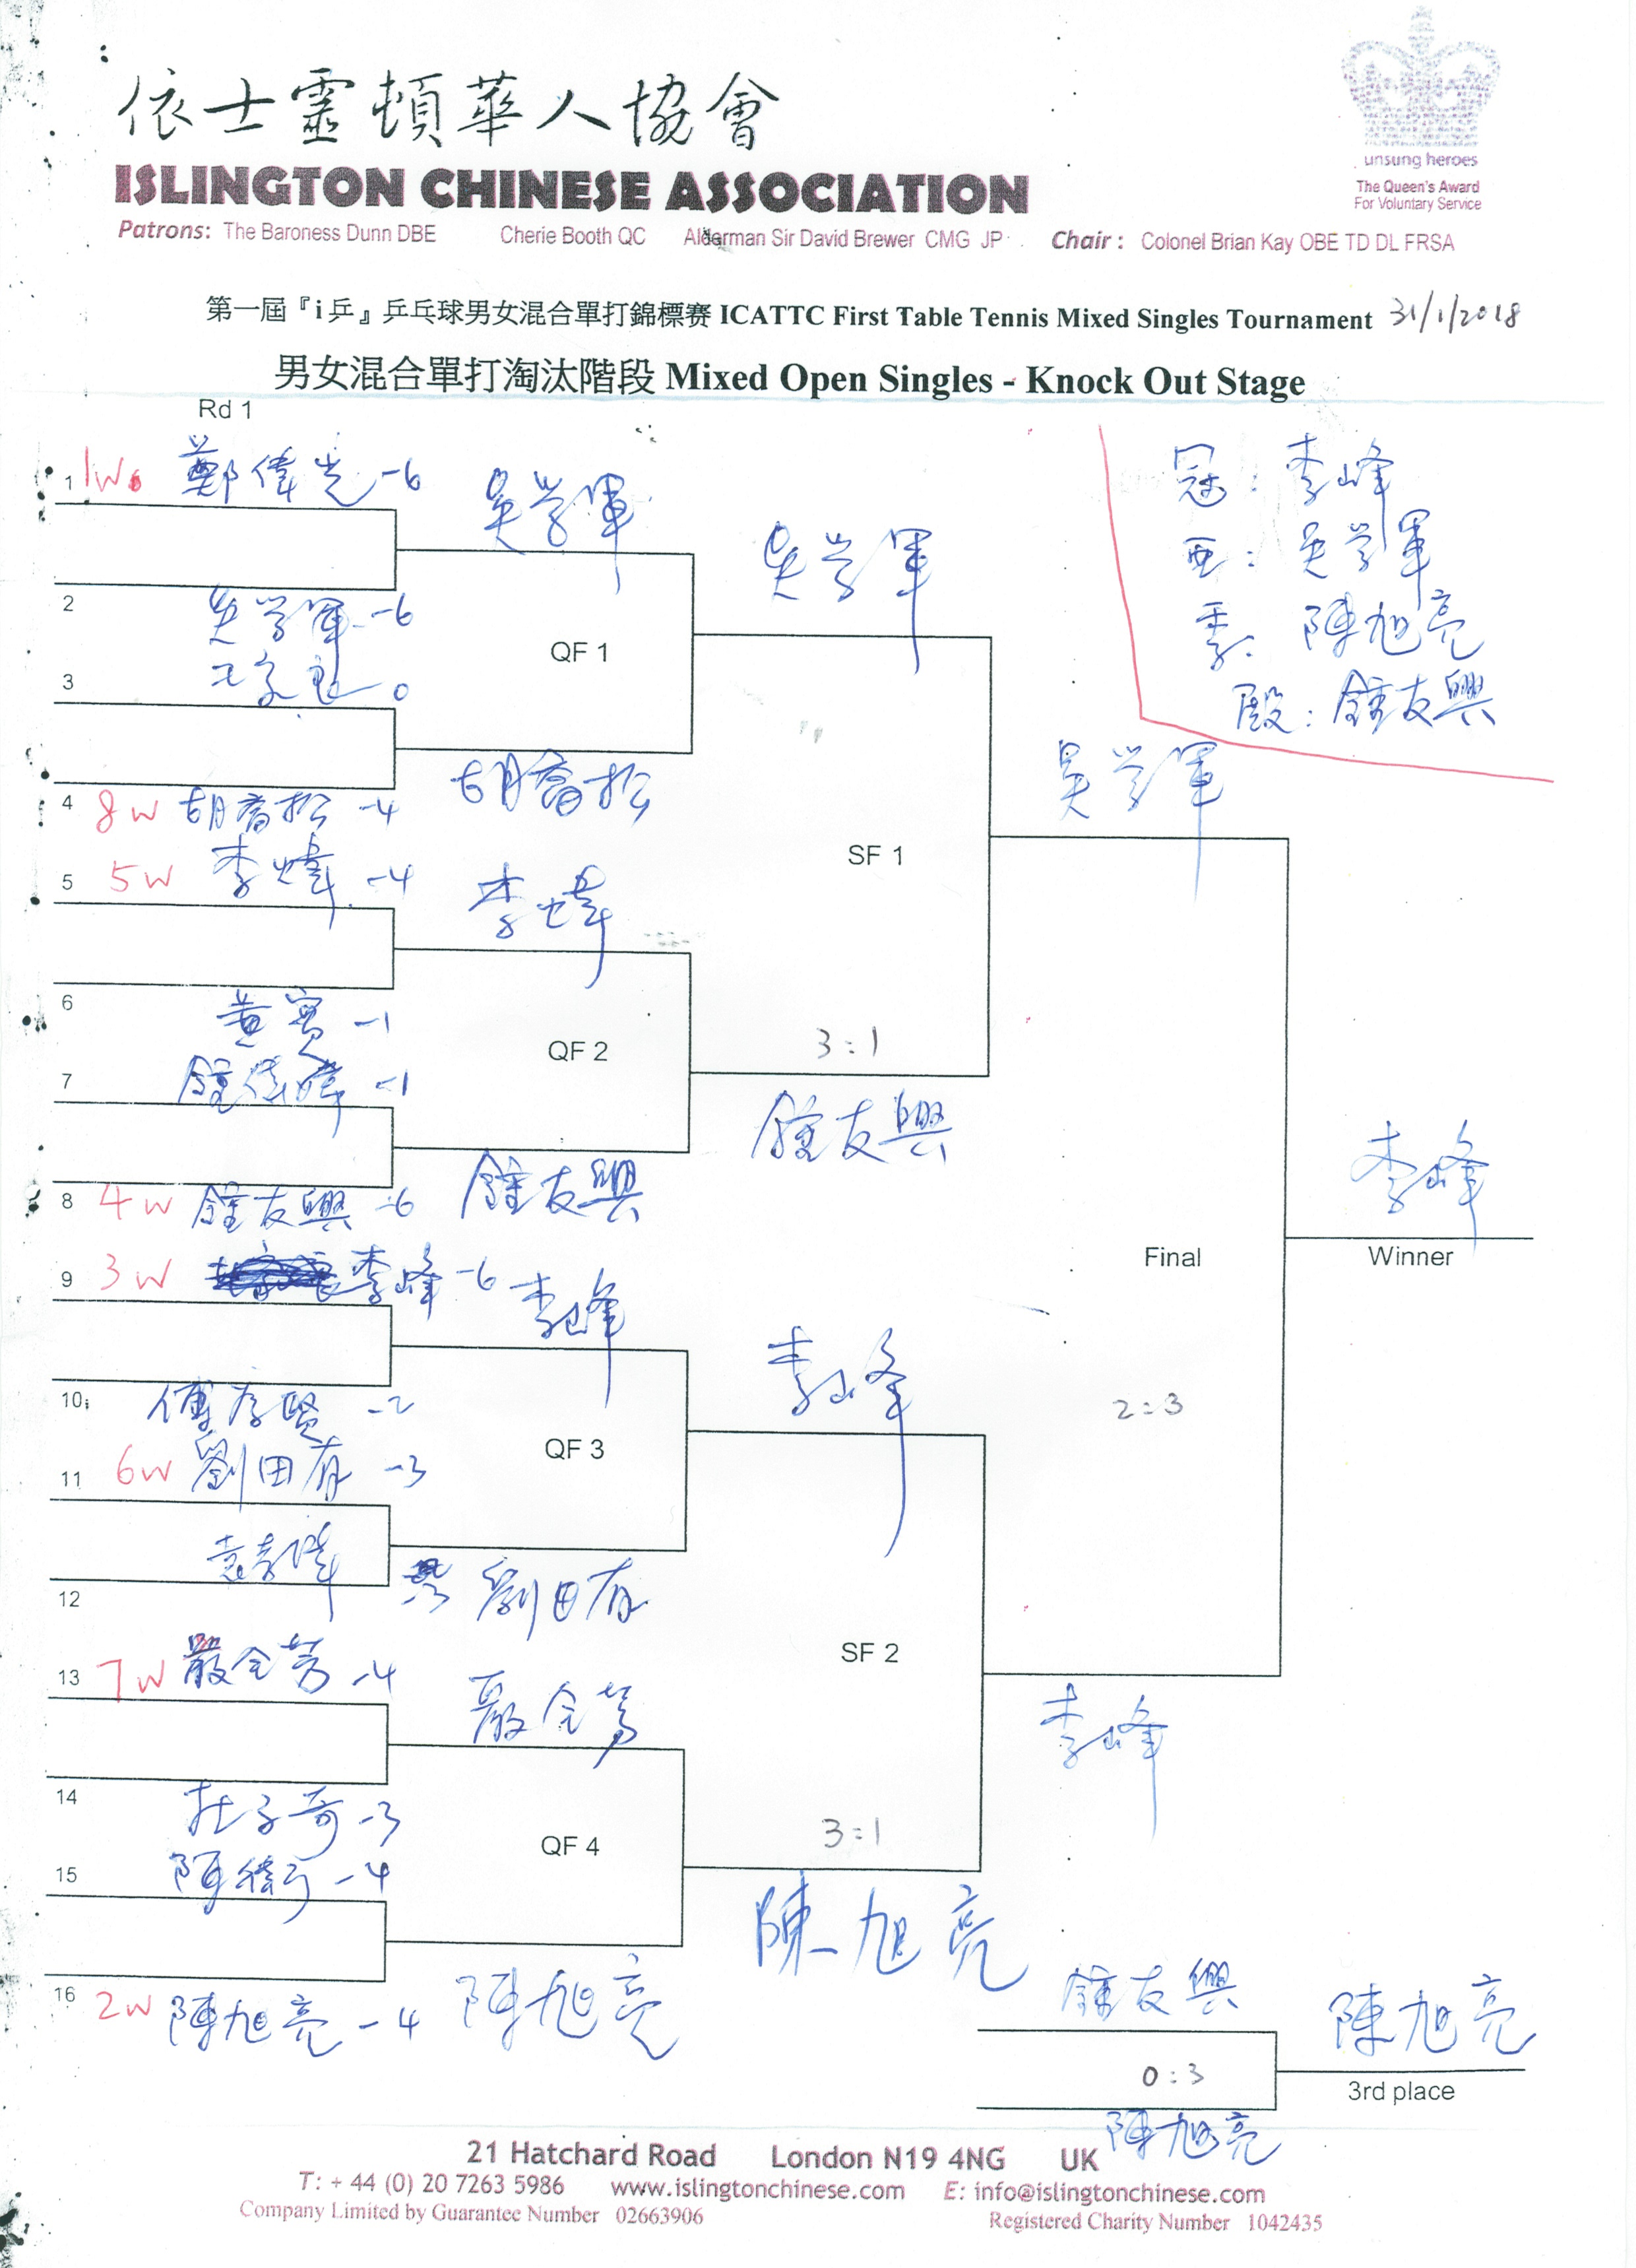 依士靈頓華人協會
ISLINGTON CHINESE ASSOCIATION
unsung heroes
The Queen's Award
For Voluntary Service
Patrons: The Baroness Dunn DBE Cherie Booth QC Alderman Sir David Brewer CMG JP Chair : Colonel Brian Kay OBE TD DL FRSA
第一屆『i乒』乒乓球男女混合單打錦標赛 ICATTC First Table Tennis Mixed Singles Tournament 31/1/2018
男女混合單打淘汰階段 Mixed Open Singles - Knock Out Stage
Rd 1
冠: 李峰
亚: 吴学軍
季: 陳旭亮
殿: 鍾友興
1 1W 鄭偉光 -6
吴学軍
吴学軍
2 吴学軍 -6
QF 1
3 0
4 8W 胡喬松 -4
胡喬松
吴学軍
SF 1
5 5W 李煒 -4
李煒
6 黄寬 -1
QF 2
3:1
7 鍾 -1
鍾友興
8 4W 鍾友興 -6
鍾友興
李峰
Winner
Final
9 3W 李峰 -6
李峰
李峰
10 傅存賢 -2
2:3
QF 3
11 6W 劉田有 -3
12
劉田有
SF 2
13 7W 嚴全芳 -4
嚴全芳
李峰
14 杜子奇 -3
QF 4
3:1
15 陳衛 -4
陳旭亮
16 2W 陳旭亮 -4
陳旭亮
鍾友興
陳旭亮
0:3
3rd place
陳旭亮
21 Hatchard Road London N19 4NG UK
T: + 44 (0) 20 7263 5986 www.islingtonchinese.com E: info@islingtonchinese.com
Company Limited by Guarantee Number 02663906 Registered Charity Number 1042435